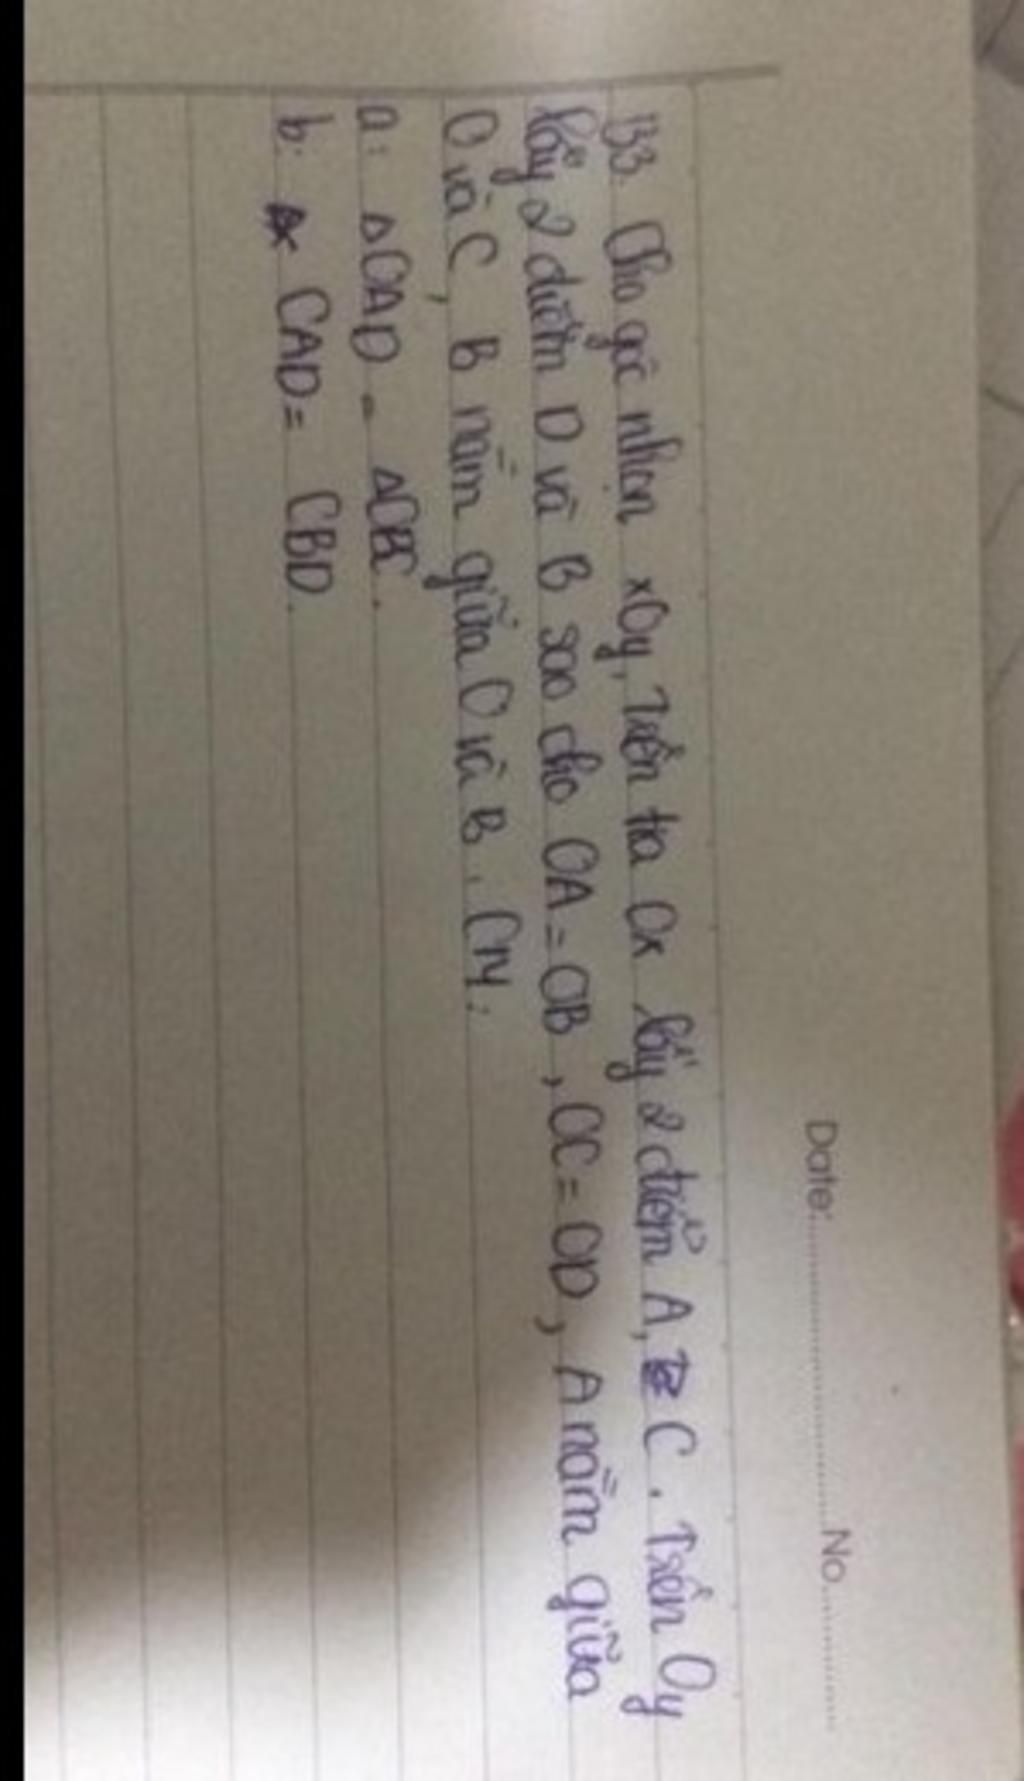 Date: No.
B3. Cho góc nhọn xOy, Trên tia Ox lấy 2 điểm A, C. Trên Oy
lấy 2 điểm D và B sao cho OA = OB, OC = OD, A nằm giữa
O và C, B nằm giữa O và B. CM:
a: ΔOAD = ΔOBC.
b: CAD = CBD.